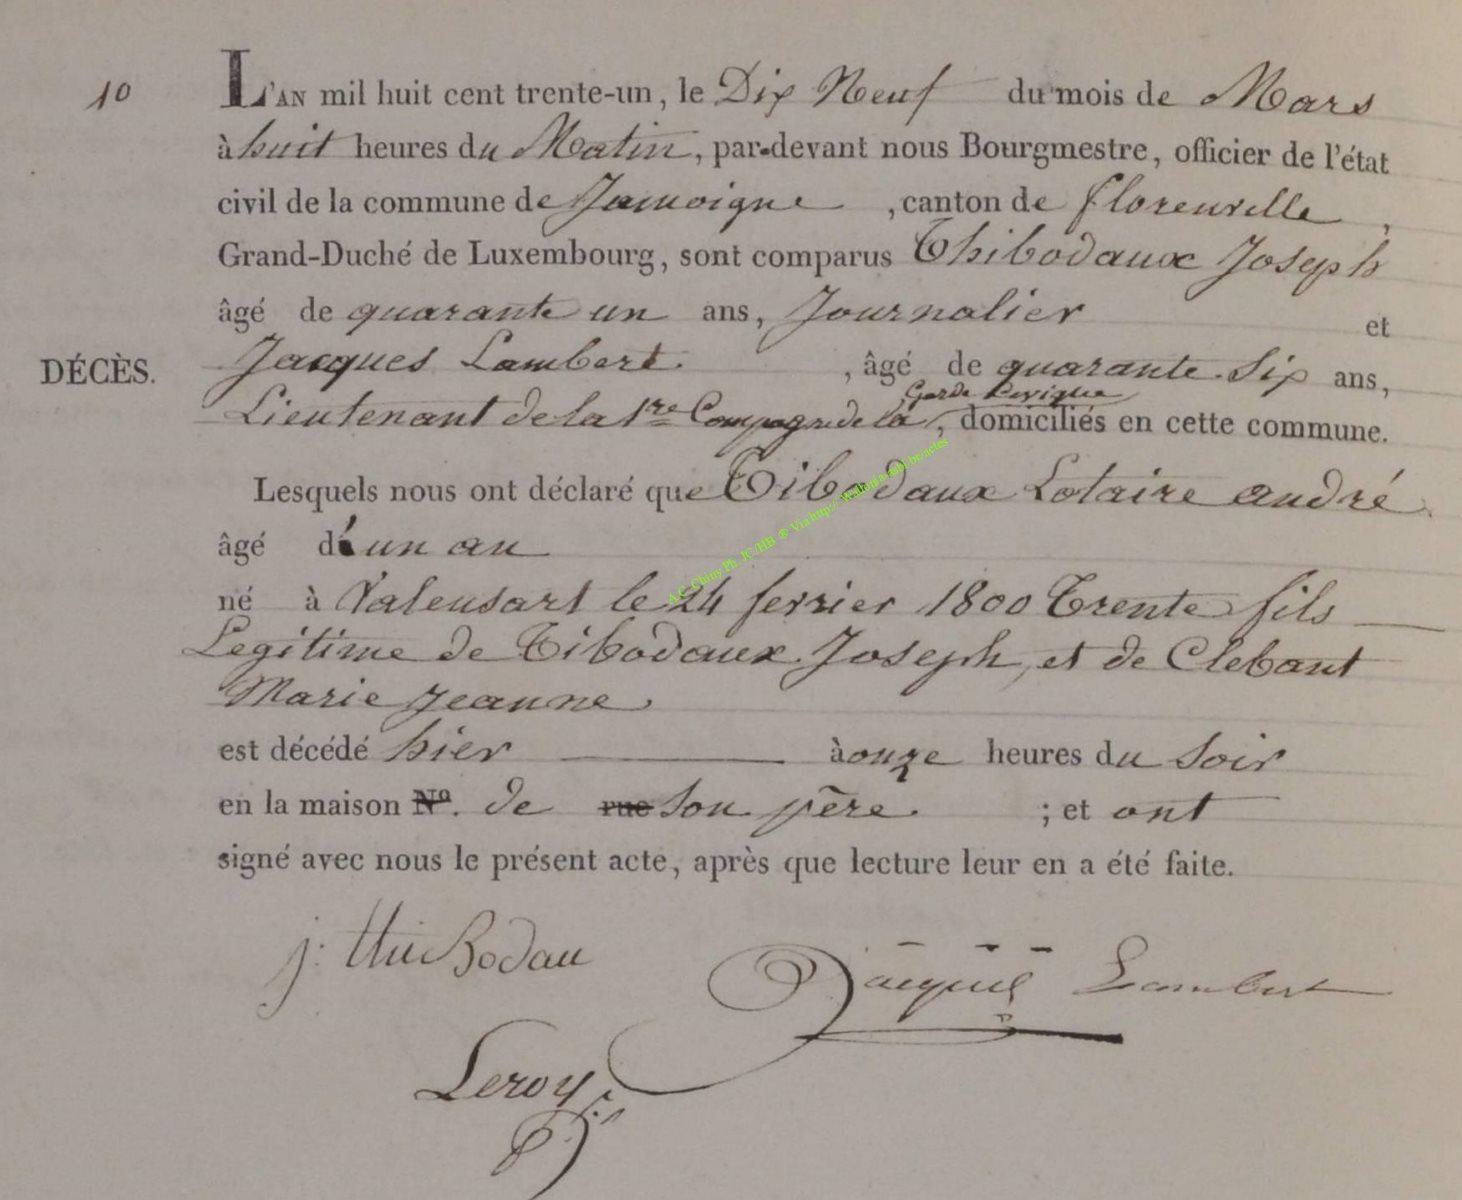 10
L'AN mil huit cent trente-un, le Dix Neuf du mois de Mars
à huit heures du Matin, par-devant nous Bourgmestre, officier de l'état
civil de la commune de Jamoigne, canton de florenville,
Grand-Duché de Luxembourg, sont comparus Thibodaux Joseph
âgé de quarante un ans, Journalier et
DÉCÈS.
Jacques Lambert, âgé de quarante Six ans,
Garde
Lieutenant de la 1re Compagn de la, domiciliés en cette commune.
Lesquels nous ont déclaré que Tibodaux Lotaire andré
âgé d'un an
né à Valensart le 24 ferrier 1800 Trente fils
Legitime de Tibodaux Joseph, et de Clebant
Marie Jeanne
est décédé hier à onze heures du Soir
en la maison No. de rue Son père ; et ont
signé avec nous le présent acte, après que lecture leur en a été faite.
j: thiBodau
Jacques Lambert
Leroy
A.C. Chiny Ph. JC/HB ® Via http://